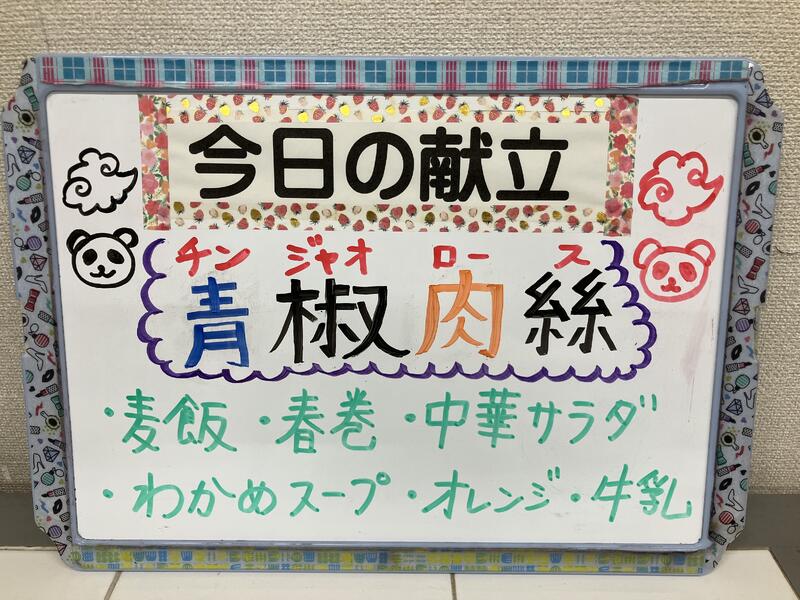 今日の献立
チン ジャオ ロー ス
青椒肉絲
・麦飯・春巻・中華サラダ
・わかめスープ・オレンジ・牛乳